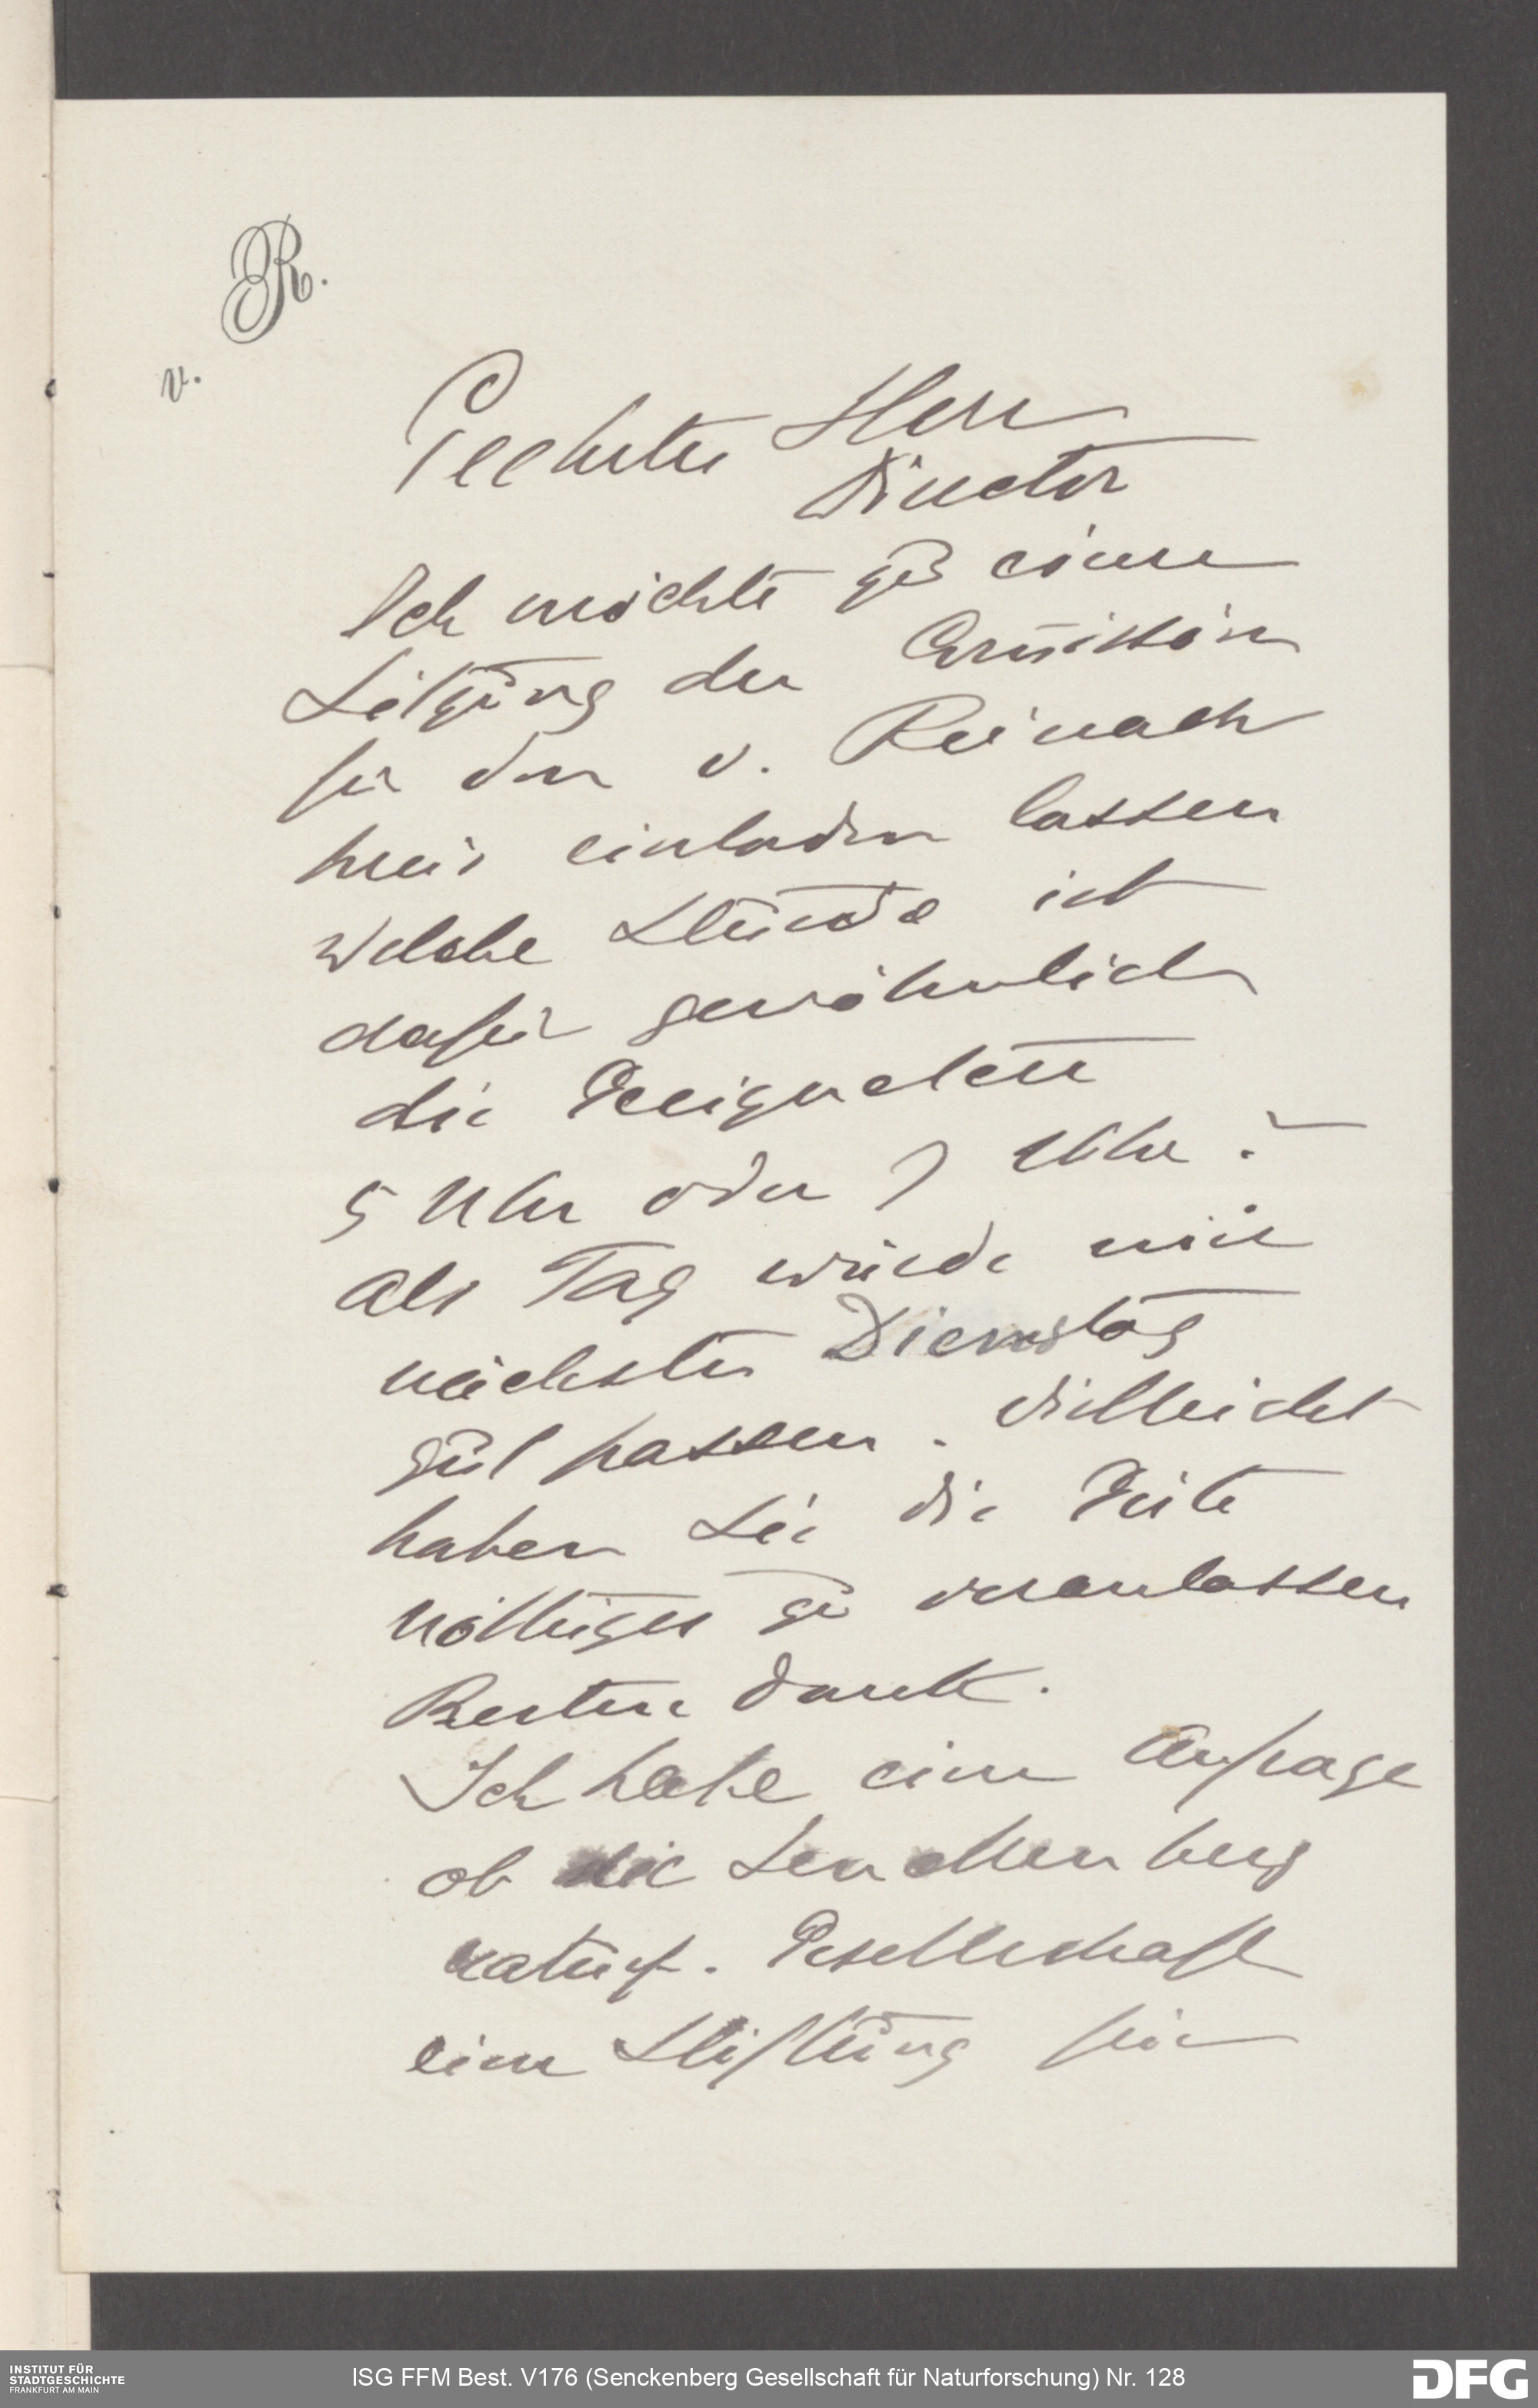 R.
v.
Geehrter Herr
Director
Ich möchte zu einer
Sitzung der Comission
für den v. Reinach
preis einladen lassen
Welche Stunde ist
dafür gewöhnlich
die Geeignetere
5 Uhr oder 7 Uhr ?
Als Tag würde mir
nächster Dienstag
gut passen . Vielleicht
haben Sie die Güte
nöthiges zu veranlassen
Besten Dank .
Ich habe eine Anfrage
ob die Senckenberg
naturf . Gesellschaft
eine Stiftung für
INSTITUT FÜR
STADTGESCHICHTE
FRANKFURT AM MAIN
ISG FFM Best. V176 (Senckenberg Gesellschaft für Naturforschung) Nr. 128
DFG